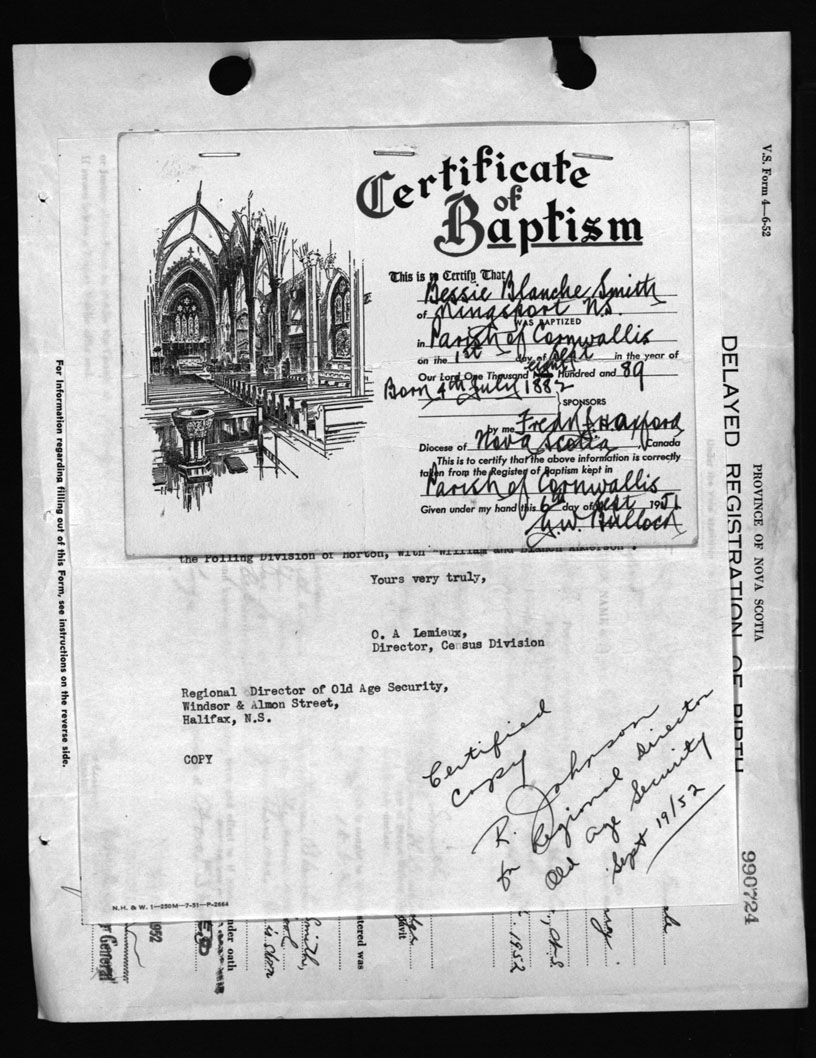 Certificate
of
Baptism
This is to Certify That
Bessie Blanche Smith
of Kingsport N.S.
WAS BAPTIZED
in Parish of Cornwallis
on the 1st day of Sept in the year of
Our Lord One Thousand eight Hundred and 89
Born 4th July 1882
SPONSORS
by me Fred
Diocese of Nova Scotia, Canada
This is to certify that the above information is correctly
taken from the Register of Baptism kept in
Parish of Cornwallis
Given under my hand this 6th day of Sept 1951
G.W. Bullock
the Polling Division of Horton, with "William and
Yours very truly,
O. A Lemieux,
Director, Census Division
Regional Director of Old Age Security,
Windsor & Almon Street,
Halifax, N.S.
COPY
Certified
Copy
R. Johnson
for Regional Director
Old Age Security
Sept 19/52
N.H. & W. 1—250M—7-51—P-2664
V.S. Form 4—6-52
PROVINCE OF NOVA SCOTIA
DELAYED REGISTRATION OF BIRTH
990724
For information regarding filling out of this Form, see instructions on the reverse side.
1952
N.S.
tered was
Smith,
nder oath
1952
General